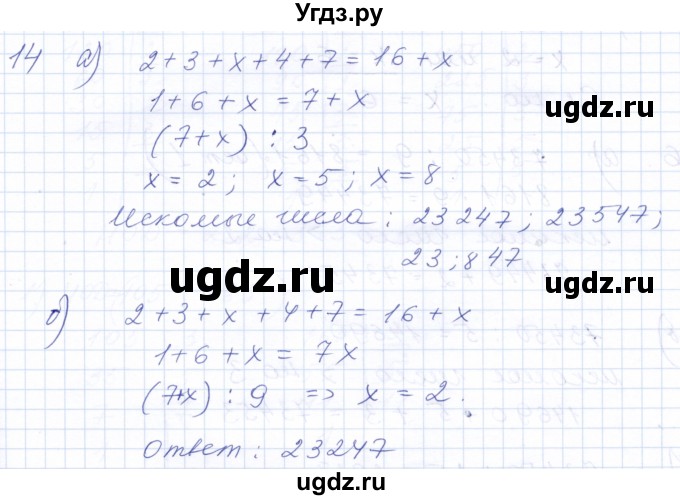 Угдз.ру
14 а) 2+3+x+4+7=16+x
1+6+x=7+x
ugdz.ru
(7+x) : 3
x=2; x=5; x=8
Искомые числа: 23247; 23547;
23;847
ugdz.ru
ugdz.ru
б) 2+3+x+4+7=16+x
1+6+x=7x
(7+x) : 9 => x=2.
Ответ: 23247
ugdz.ru